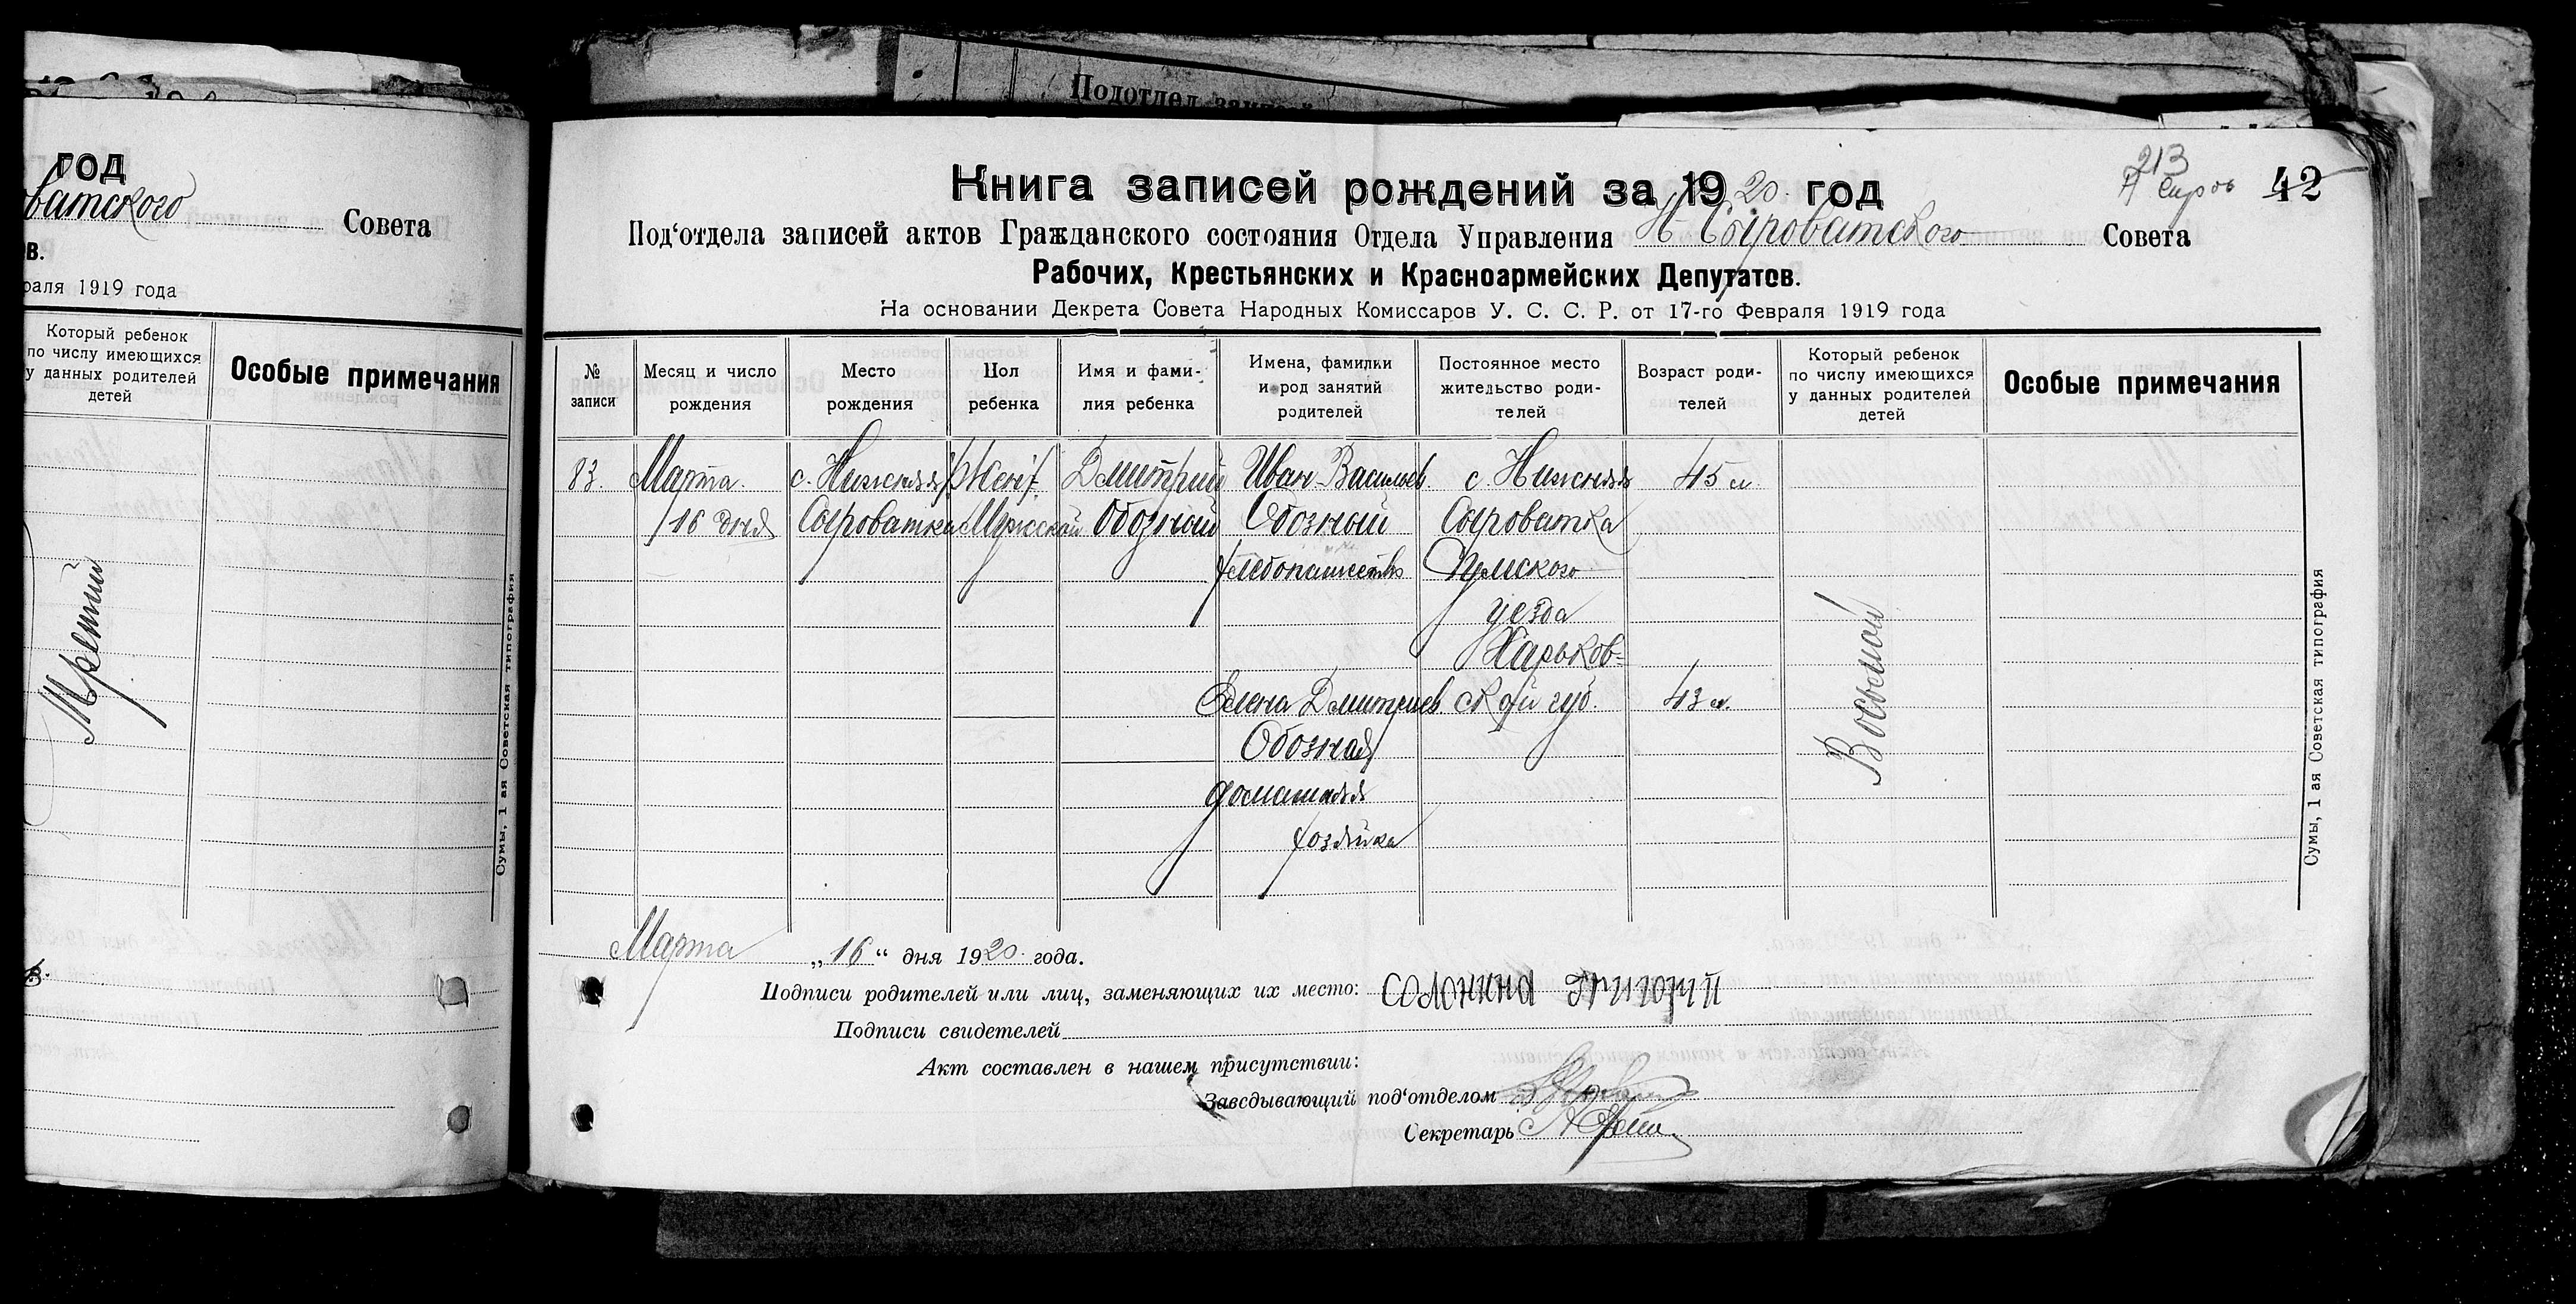 Подотдел записей
год
ватского Совета
ов.
раля 1919 года
Который ребенок
по числу имеющихся
у данных родителей
детей
Особые примечания
Третий
Сумы, 1 ая Советская типография
213
Н Сыров
42
Книга записей рождений за 1920 год
Под‘отдела записей актов Гражданского состояния Отдела Управления Н Сыроватского Совета
Рабочих, Крестьянских и Красноармейских Депутатов.
На основании Декрета Совета Народных Комиссаров У. С. С. Р. от 17-го Февраля 1919 года
№
записи
Месяц и число
рождения
Место
рождения
Пол
ребенка
Имя и фами-
лия ребенка
Имена, фамилии
и род занятий
родителей
Постоянное место
жительство роди-
телей
Возраст роди-
телей
Который ребенок
по числу имеющихся
у данных родителей
детей
Особые примечания
83.
Марта
16 дня
с. Нижняя
Сыроватка
Мужской
Дмитрий
Обозный
Иван Васильев.
Обозный
хлебопашество
с. Нижняя
Сыроватка
Сумского
уезда
Харьков-
ской губ.
45 л
Елена Дмитриев
Обозная
домашняя
хозяйка
43 л.
Восьмой
Сумы, 1 ая Советская типография
Марта „16“ дня 1920 года.
Подписи родителей или лиц, заменяющих их место: Солонина Григорий
Подписи свидетелей
Акт составлен в нашем присутствии:
Заведывающий под‘отделом
Секретарь